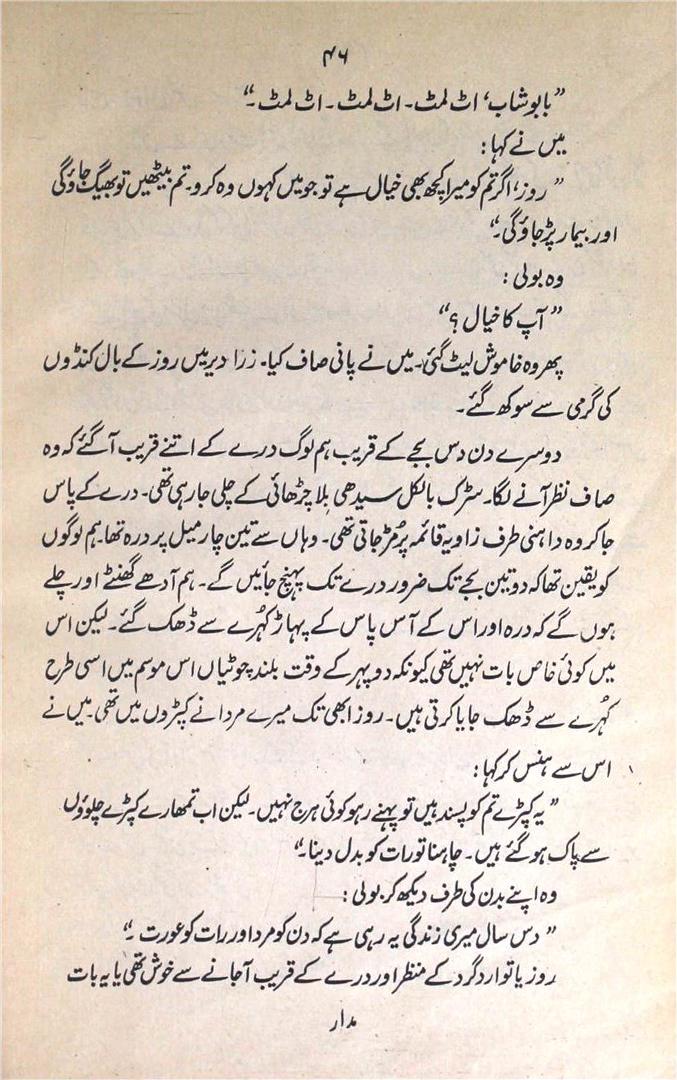 ۴۶
”بابو شاب، اٹ لمٹ۔ اٹ لمٹ۔ اٹ لمٹ۔“
میں نے کہا:
”روز، اگر تم کو میرا کچھ بھی خیال ہے تو جو میں کہوں وہ کرو۔ تم بیٹھیں تو بھیگ جاؤگی
اور بیمار پڑ جاؤگی۔“
وہ بولی:
”آپ کا خیال؟“
پھر وہ خاموش لیٹ گئی۔ میں نے پانی صاف کیا۔ زرا دیر میں روز کے بال کنڈوں
کی گرمی سے سوکھ گئے۔
دوسرے دن دس بجے کے قریب ہم لوگ درے کے اتنے قریب آگئے کہ وہ
صاف نظر آنے لگا۔ سڑک بالکل سیدھی بلا چڑھائی کے چلی جارہی تھی۔ درے کے پاس
جاکر وہ داہنی طرف زاویہ قائمہ پر مُڑ جاتی تھی۔ وہاں سے تین چار میل پر درہ تھا۔ ہم لوگوں
کو یقین تھا کہ دو تین بجے تک ضرور درے تک پہنچ جائیں گے۔ ہم آدھے گھنٹے اور چلے
ہوں گے کہ درہ اور اس کے آس پاس کے پہاڑ کہُرے سے ڈھک گئے۔ لیکن اس
میں کوئی خاص بات نہیں تھی کیونکہ دوپہر کے وقت بلند چوٹیاں اس موسم میں اسی طرح
کہُرے سے ڈھک جایا کرتی ہیں۔ روز ابھی تک میرے مردانے کپڑوں میں تھی۔ میں نے
اس سے ہنس کر کہا:
”یہ کپڑے تم کو پسند ہیں تو پہنے رہو کوئی ہرج نہیں۔ لیکن اب تمھارے کپڑے چلوؤں
سے پاک ہو گئے ہیں۔ چاہنا تو رات کو بدل دینا۔“
وہ اپنے بدن کی طرف دیکھ کر بولی:
”دس سال میری زندگی یہ رہی ہے کہ دن کو مرد اور رات کو عورت۔“
روز یا تو ارد گرد کے منظر اور درے کے قریب آجانے سے خوش تھی یا یہ بات
مدار